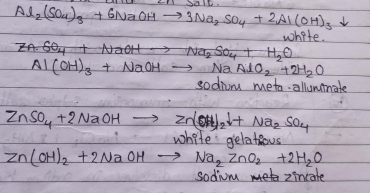 and Zn salt.
Al₂(SO₄)₃ + 6NaOH → 3Na₂SO₄ + 2Al(OH)₃ ↓
white.
Zn SO₄ + NaOH → Na₂SO₄ + H₂O
Al(OH)₃ + NaOH → NaAlO₂ + 2H₂O
sodium meta-alluminate
ZnSO₄ + 2NaOH → Zn(OH)₂↓ + Na₂SO₄
white gelatious
Zn(OH)₂ + 2NaOH → Na₂ZnO₂ + 2H₂O
sodium meta zincate